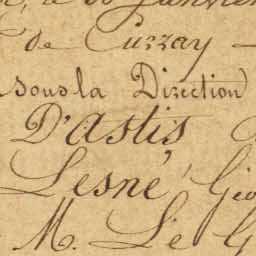 de Curzay
sous la Direction
D'Astis
Lesné, Géo
M. Le G